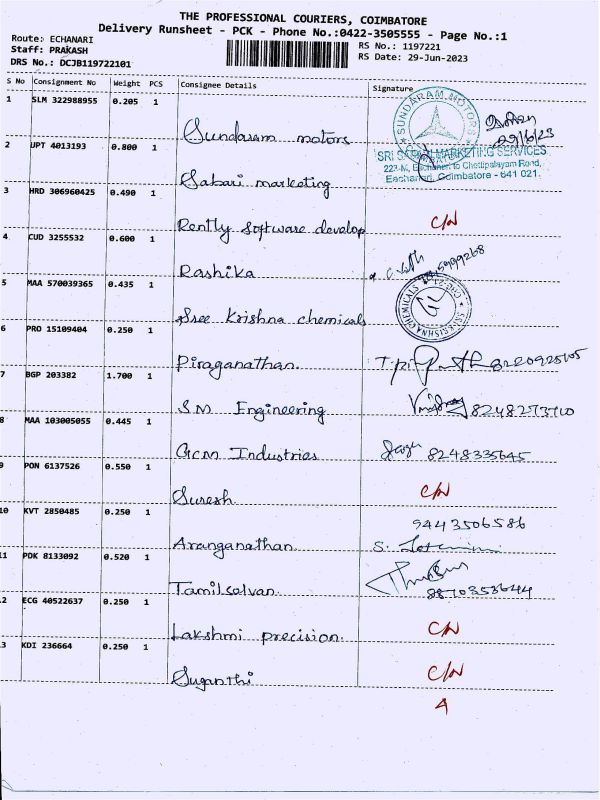 THE PROFESSIONAL COURIERS, COIMBATORE
Delivery Runsheet - PCK - Phone No.:0422-3505555 - Page No.:1
Route: ECHANARI
RS No.: 1197221
Staff: PRAKASH
RS Date: 29-Jun-2023
DRS No.: DCJB119722101
S No Consignment No Weight PCS Consignee Details Signature
1 SLM 322988955 0.205 1 Sundaram motors
SUNDARAM MOTORS
29/6/23
2 UPT 4013193 0.800 1 Sabari marketing
SRI SABARI MARKETING SERVICES
223-M, Eachanari to Chettipalayam Road,
Eachanari, Coimbatore - 641 021.
3 HRD 306960425 0.490 1 Rently Software develop C/N
4 CUD 3255532 0.600 1 Rashika
5 MAA 570039365 0.435 1 Sree Krishna chemicals
6 PRO 15109404 0.250 1 Piraganathan.
7 BGP 203382 1.700 1 S.M Engineering 8248273710
8 MAA 103005055 0.445 1 Gcm Industries 8248335645
9 PON 6137526 0.550 1 Suresh C/N
10 KVT 2850485 0.250 1 Aranganathan 9443506586
11 PDK 8133092 0.520 1 Tamilselvan
2 ECG 40522637 0.250 1 Lakshmi precision. C/N
3 KDI 236664 0.250 1 Suganthi C/N
4